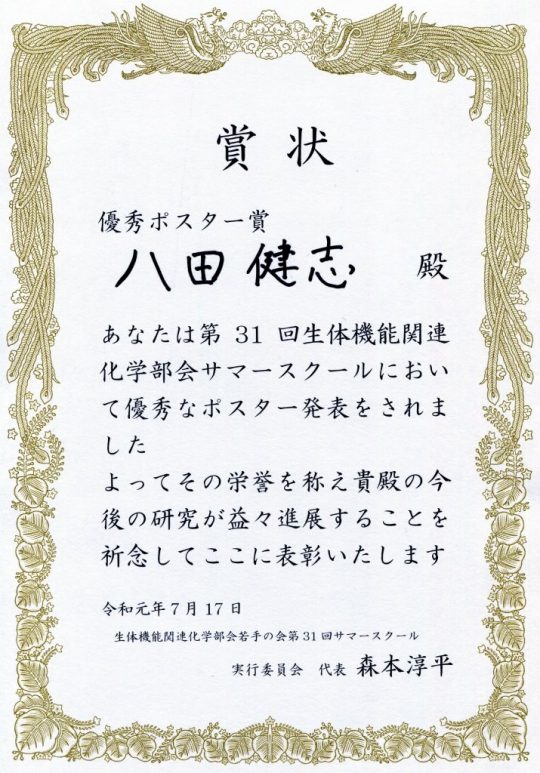 賞状
優秀ポスター賞
八田健志 殿
あなたは第 31 回生体機能関連
化学部会サマースクールにおい
て優秀なポスター発表をされま
した
よってその栄誉を称え貴殿の今
後の研究が益々進展することを
祈念してここに表彰いたします
令和元年7月17日
生体機能関連化学部会若手の会第31回サマースクール
実行委員会 代表 森本淳平